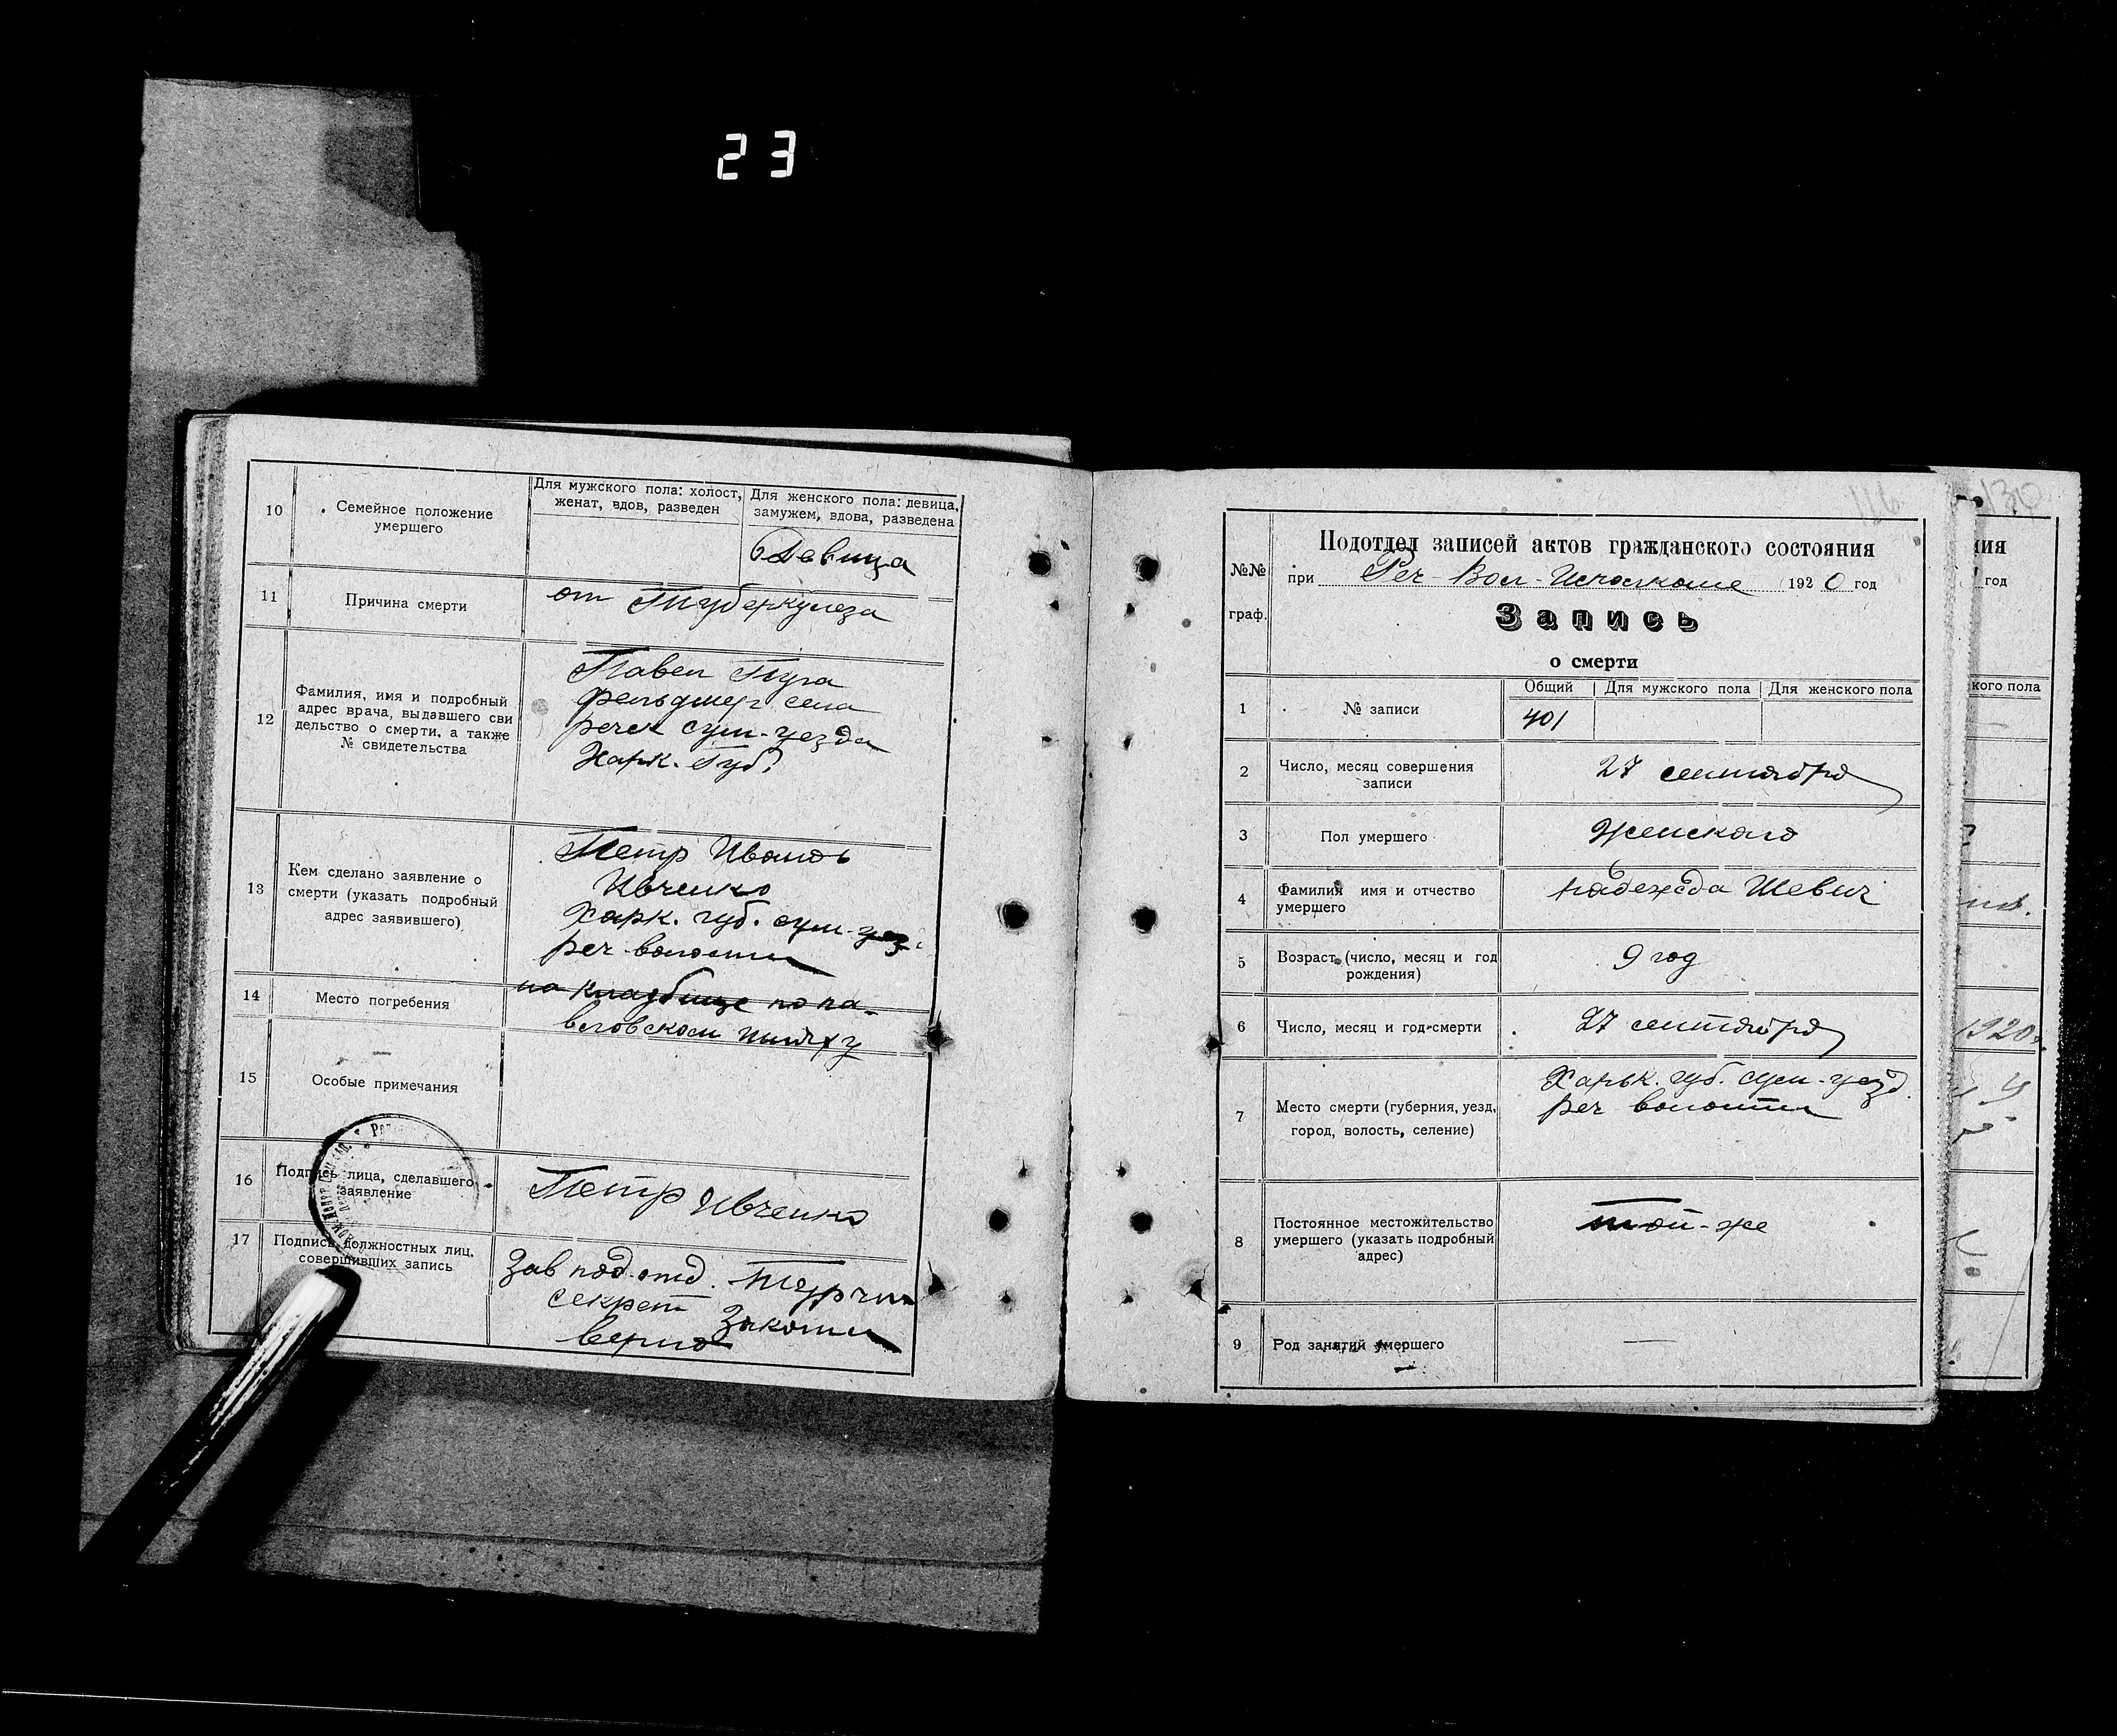 23
10
Семейное положение
умершего
Для мужского пола: холост,
женат, вдов, разведен
Для женского пола: девица,
замужем, вдова, разведена
Девица
11
Причина смерти
от Туберкулеза
12
Фамилия, имя и подробный
адрес врача, выдавшего сви
дельство о смерти, а также
№ свидетельства
Павел
фельдшер села
речек сум-уезда
Харк. Губ.
13
Кем сделано заявление о
смерти (указать подробный
адрес заявившего)
Петр
Ивченко
Харк. губ. сум-уез
реч-волости
14
Место погребения
на кладбище по па-
вловском шляху
15
Особые примечания
16
Подпись лица, сделавшего
заявление
Петр Ивченко
17
Подпись должностных лиц,
совершивших запись
Зав под-отд.
секрет
Верно
116
№№
граф.
Подотдел записей актов гражданского состояния
при Реч-Вол-Исполкоме 1920 год
Запись
о смерти
1
№ записи
Общий
Для мужского пола
Для женского пола
401
2
Число, месяц совершения
записи
27 сентября
3
Пол умершего
Женского
4
Фамилия имя и отчество
умершего
Надежда Шевич
5
Возраст (число, месяц и год
рождения)
9 год
6
Число, месяц и год смерти
27 сентября
7
Место смерти (губерния, уезд,
город, волость, селение)
Харьк. губ. сум-уезд.
реч волости
8
Постоянное местожительство
умершего (указать подробный
адрес)
той-же
9
Род занятий умершего
—
130
ния
год
кого пола
1920